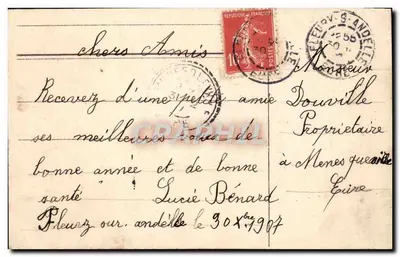 chers Amis
Recevez d'une petite amie
ses meilleures vœux de
bonne année et de bonne
santé Lucie Bénard
Fleuez sur. andelle le 30 Xbre 1907
Monsieur
Douville
Propriétaire
à Menesqueville
Eure
FLEURY-S-ANDELLE
10